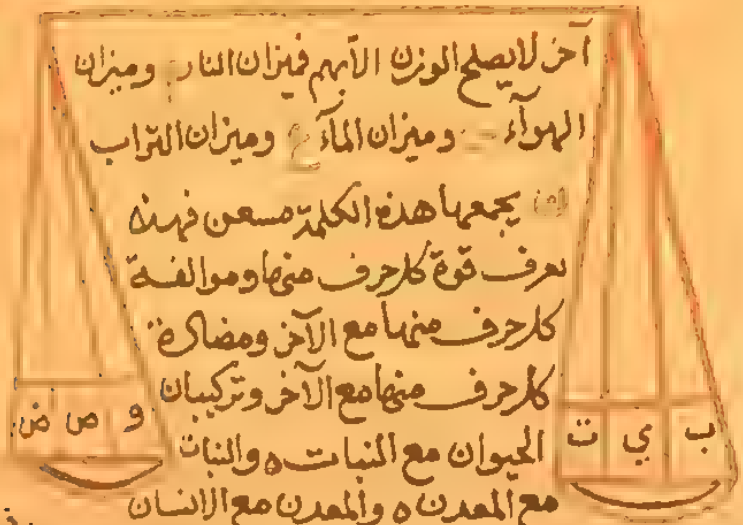 آخر لايصلح الوزن الابهم فميزان النار وميزان
الهوآء وميزان المآء ع وميزان التراب
يجمعها هذه الكلمة مسعن فهذه
تعرف قوة كل حرف منها وموالفة
كل حرف منها مع الآخر ومضاددة
كل حرف منها مع الآخر وتركيبان
الحيوان مع النبات ه والنبات
مع المعدن ه والمعدن مع الانسان
ب ي ت
و ص ض